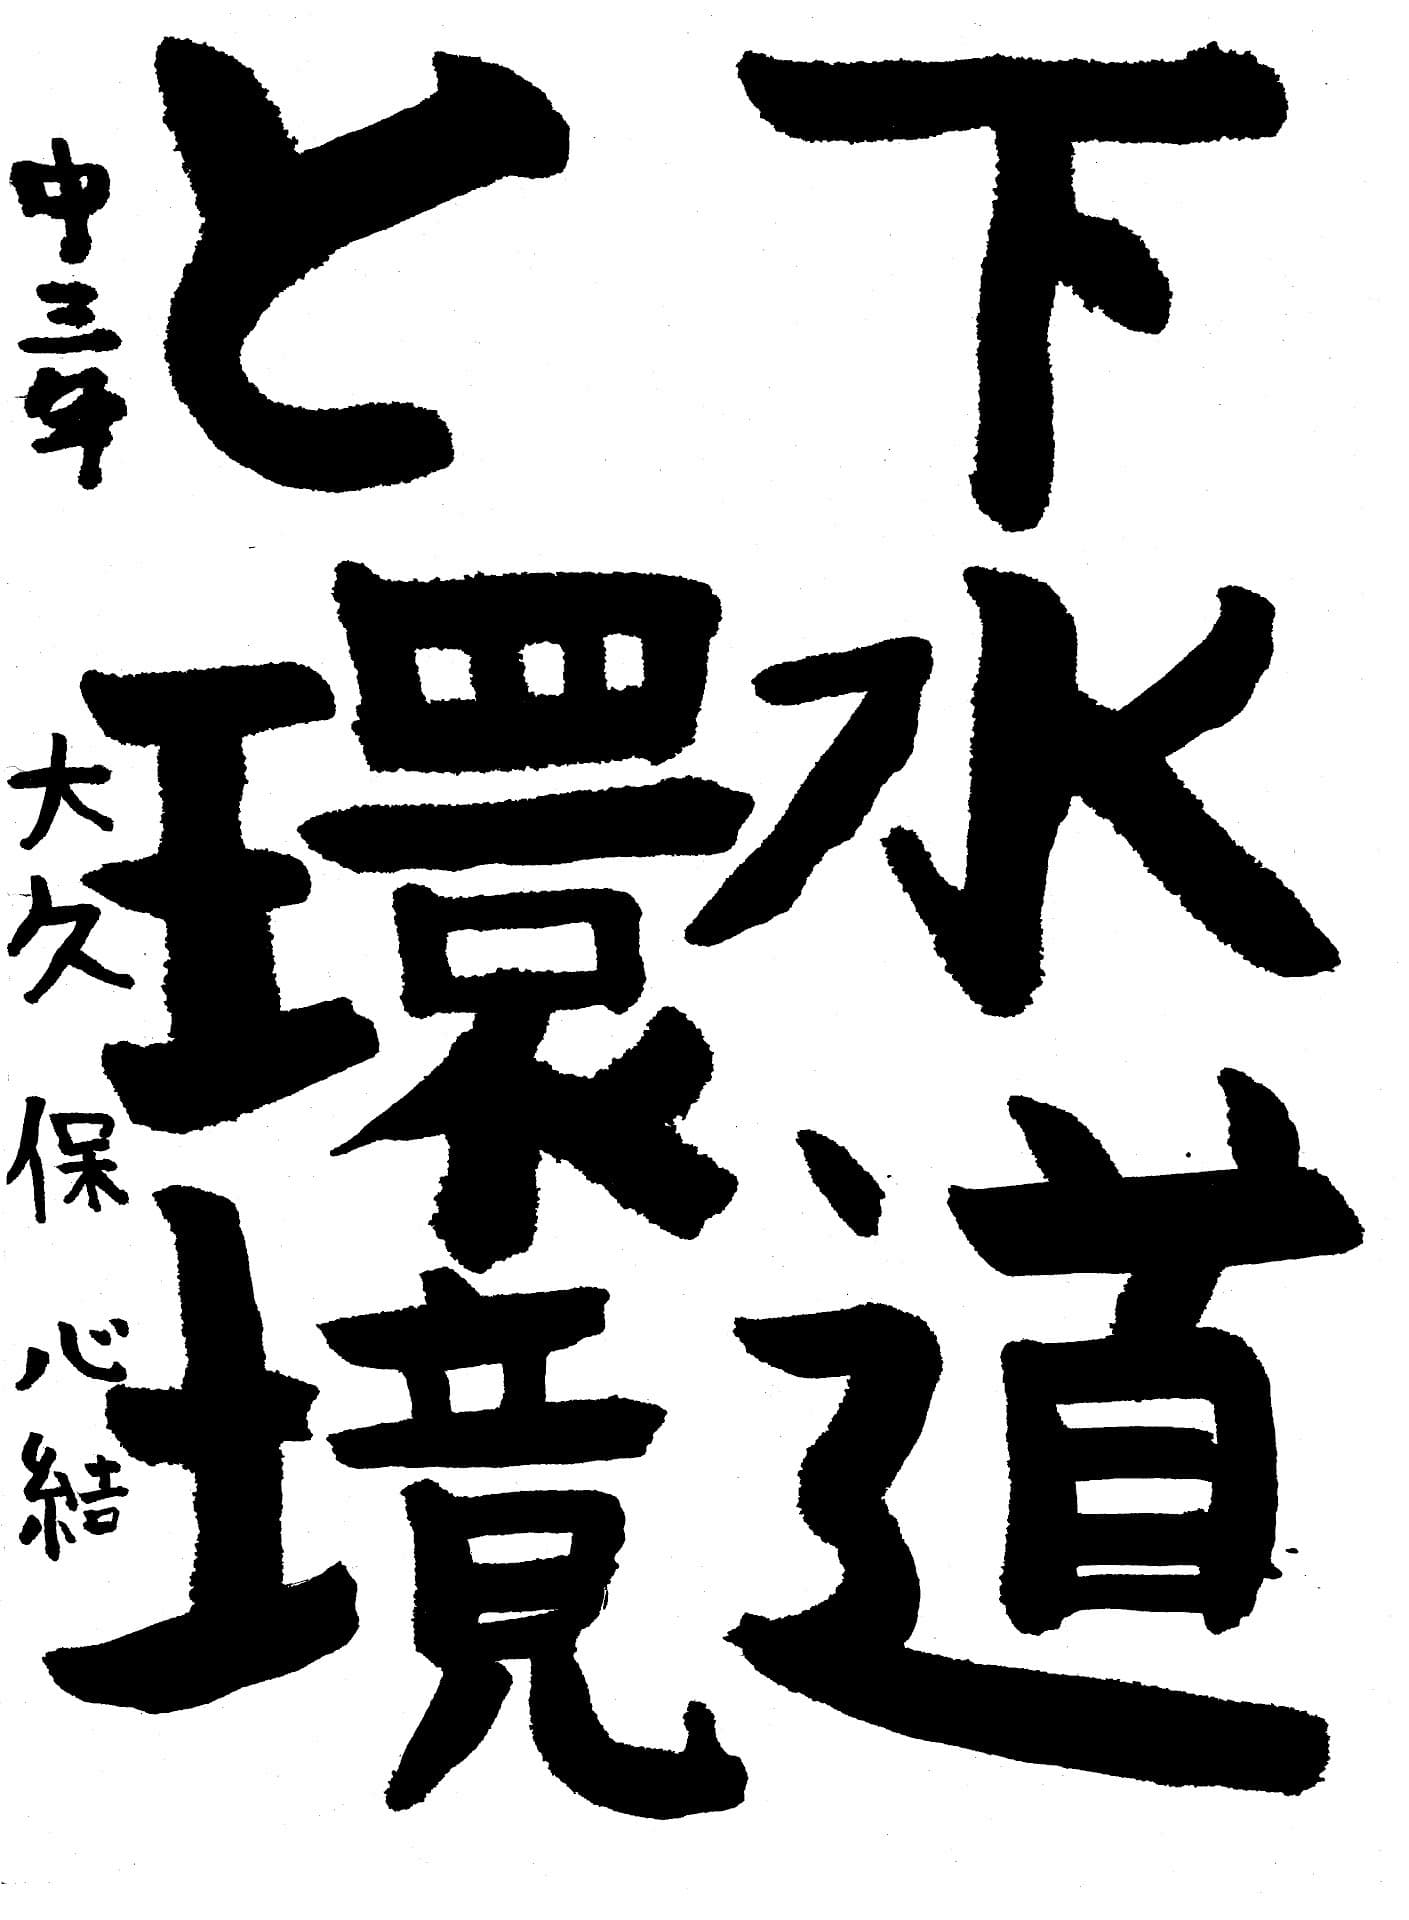 下水道
と環境
中三年 大久保心結